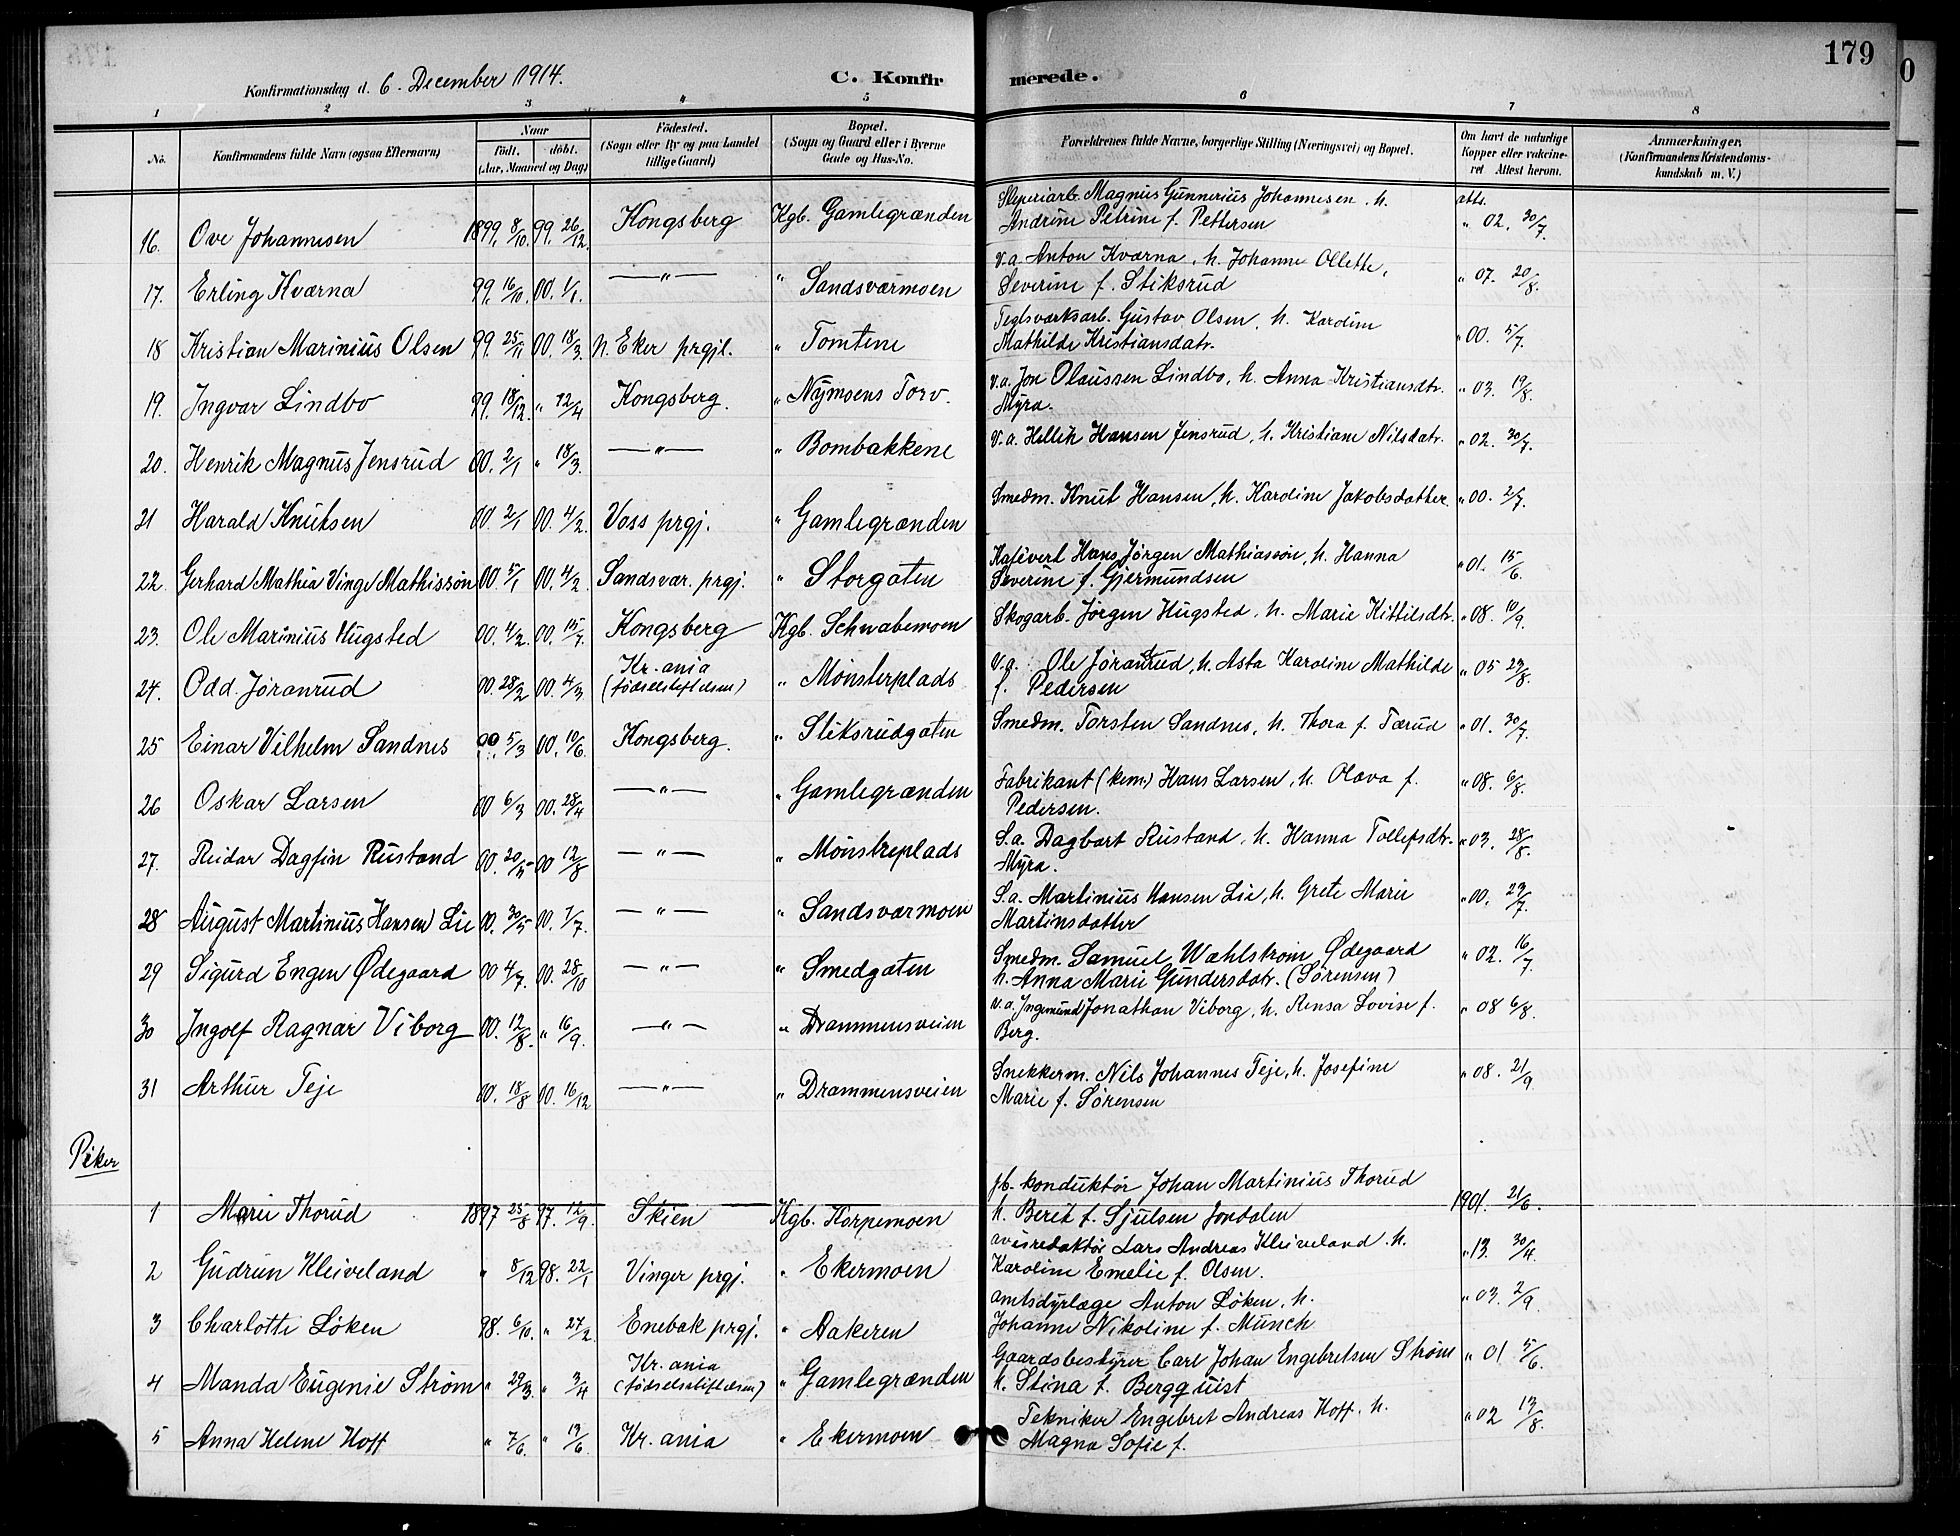 179
Konfirmationsdag d. 6. December 1914.
C. Konfirmerede.
1 2 3 4 5 6 7 8
No.
Konfirmandens fulde Navn (ogsaa Efternavn)
Naar
födt. döbt.
(Aar, Maaned og Dag)
Födested.
(Sogn eller By og paa Landet
tillige Gaard)
Bopæl.
(Sogn og Gaard eller i Byerne
Gade og Hus-No.
Forældrenes fulde Navne, borgerlige Stilling (Næringsvei) og Bopæl.
Om havt de naturlige
Kopper eller vakcine-
ret Attest herom.
Anmærkninger.
(Konfirmandens Kristendoms-
kundskab m. V.)
16. Ove Johannesen 1899. 8/10. 99. 26/12. Kongsberg Kgb. Gamlegrænden Sliperiarb. Magnus Gunnerius Johannesen, h. atts.
Andrine Petrine f. Pettersen " 02. 30/7.
17. Erling Kværna 99. 16/10. 00. 1/1. —"— " Sandsværmoen v.a. Anton Kværna, h. Johanne Ollette, " 07. 20/8.
Severine f. Stiksrud
18 Kristian Marinius Olsen 99. 25/11 00. 18/3. N. Eker prgjl. " Tomtene Teglværksarb. Gustav Olsen, h. Karoline " 00. 5/7.
Mathilde Kristiansdatr.
19. Ingvar Lindbo 99. 18/12. " 12/4 Kongsberg. " Nymoens Torv. v.a. Jon Olaussen Lindbo, h. Anna Kristiansdtr. " 03. 19/8.
Myra.
20. Henrik Magnus Jensrud 00. 2/1 " 18/3. —"— " Bombakkene v.a. Hellik Hansen Jensrud, h. Kristiane Nilsdatr. " 02. 30/7.
21 Harald Knutsen 00. 2/1 00. 4/2. Voss prgj. " Gamlegrænden Smedm. Knut Hansen, h. Karoline Jakobsdatter. " 00. 2/7.
22. Gerhard Mathia Vinge Mathissøn 00 5/1 00. 4/2. Sandsvær. prgj. " Storgaten Kafévert Hans Jørgen Mathiassøn, h. Hanna " 01. 15/6.
Severine f. Gjermundsen
23. Ole Marinius Hugsted 00. 4/2. 00. 15/7. Kongsberg Kgb. Schwabemoen Skogarb. Jørgen Hugsted, h. Marie Kittilsdtr. " 08. 10/9.
24. Odd Jøranrud 00. 28/2 00. 4/3. Kr.ania " Mønsterplads v.a. Ole Jøranrud, h. Asta Karoline Mathilde " 05 29/8.
(fødselsstiftelsen) f. Pedersen
25 Einar Vilhelm Sandnes 00. 5/3 00. 10/6. Kongsberg. " Stiksrudgaten Smedm. Torsten Sandnes, h. Thora f. Tærud " 01. 30/7.
26 Oskar Larsen 00 6/3 00. 28/4 —"— " Gamlegrænden Fabrikant (kem.) Hans Larsen, h. Olava f. " 08. 6/8.
Pedersen.
27. Reidar Dagfin Rustand 00. 20/5 00 12/8 —"— " Mønstreplads S.a. Dagbart Rustand, h. Hanna Tollefsdtr. " 03. 28/8.
Myra.
28 August Martinius Hansen Lie 00. 30/5 00. 1/7. —"— " Sandsværmoen S.a. Martinius Hansen Lie, h. Grete Marie " 00. 29/7.
Martinsdatter
29 Sigurd Engen Ødegaard 00 4/7. 00. 28/10 —"— " Smedgaten Smedm. Samuel Wahlstrøm Ødegaard " 02. 16/7.
h. Anna Marie Gundersdatr. (Sørensen)
30 Ingolf Ragnar Viborg 00. 12/8. " 16/9. —"— " Drammensveien v.a. Ingemund Jonathan Viborg, h. Rensa Lovise f. " 08 6/8.
Berg.
31 Arthur Teje 00. 18/8 00. 16/12 —"— " Drammensveien Snekkerm. Nils Johannes Teje, h. Josefine " 08. 21/9.
Marie f. Sørensen
Piker
1 Marie Thorud 1897 25/8 97. 12/9. Skien Kgb. Korpemoen jb.konduktør Johan Martinius Thorud 1901. 21/6.
h. Berit f. Sjulsen Jondalen
2 Gudrun Kleiveland " 8/12 98. 22/1 Vinger prgj. " Ekermoen avisredaktør Lars Andreas Kleiveland, h. " 13. 30/4.
Karoline Emelie f. Olsen.
3 Charlotte Løken 98. 6/10. " 27/2. Enebak prgj. " Aakeren amtsdyrlæge Anton Løken, h. " 03. 2/9.
Johanne Nikoline f. Münch
4 Manda Eugenie Strøm " 29/3. " 3/4 Kr.ania " Gamlegrænden Gaardsbestyrer Carl Johan Engebretsen Strøm " 01 5/6.
(fødselsstiftelsen) h. Stina f. Bergquist
5 Anna Helene Hoff " 7/6. " 19/6. Kr.ania " Ekermoen Tekniker Engebret Andreas Hoff, h. " 02 19/8.
Magna Sofie f.